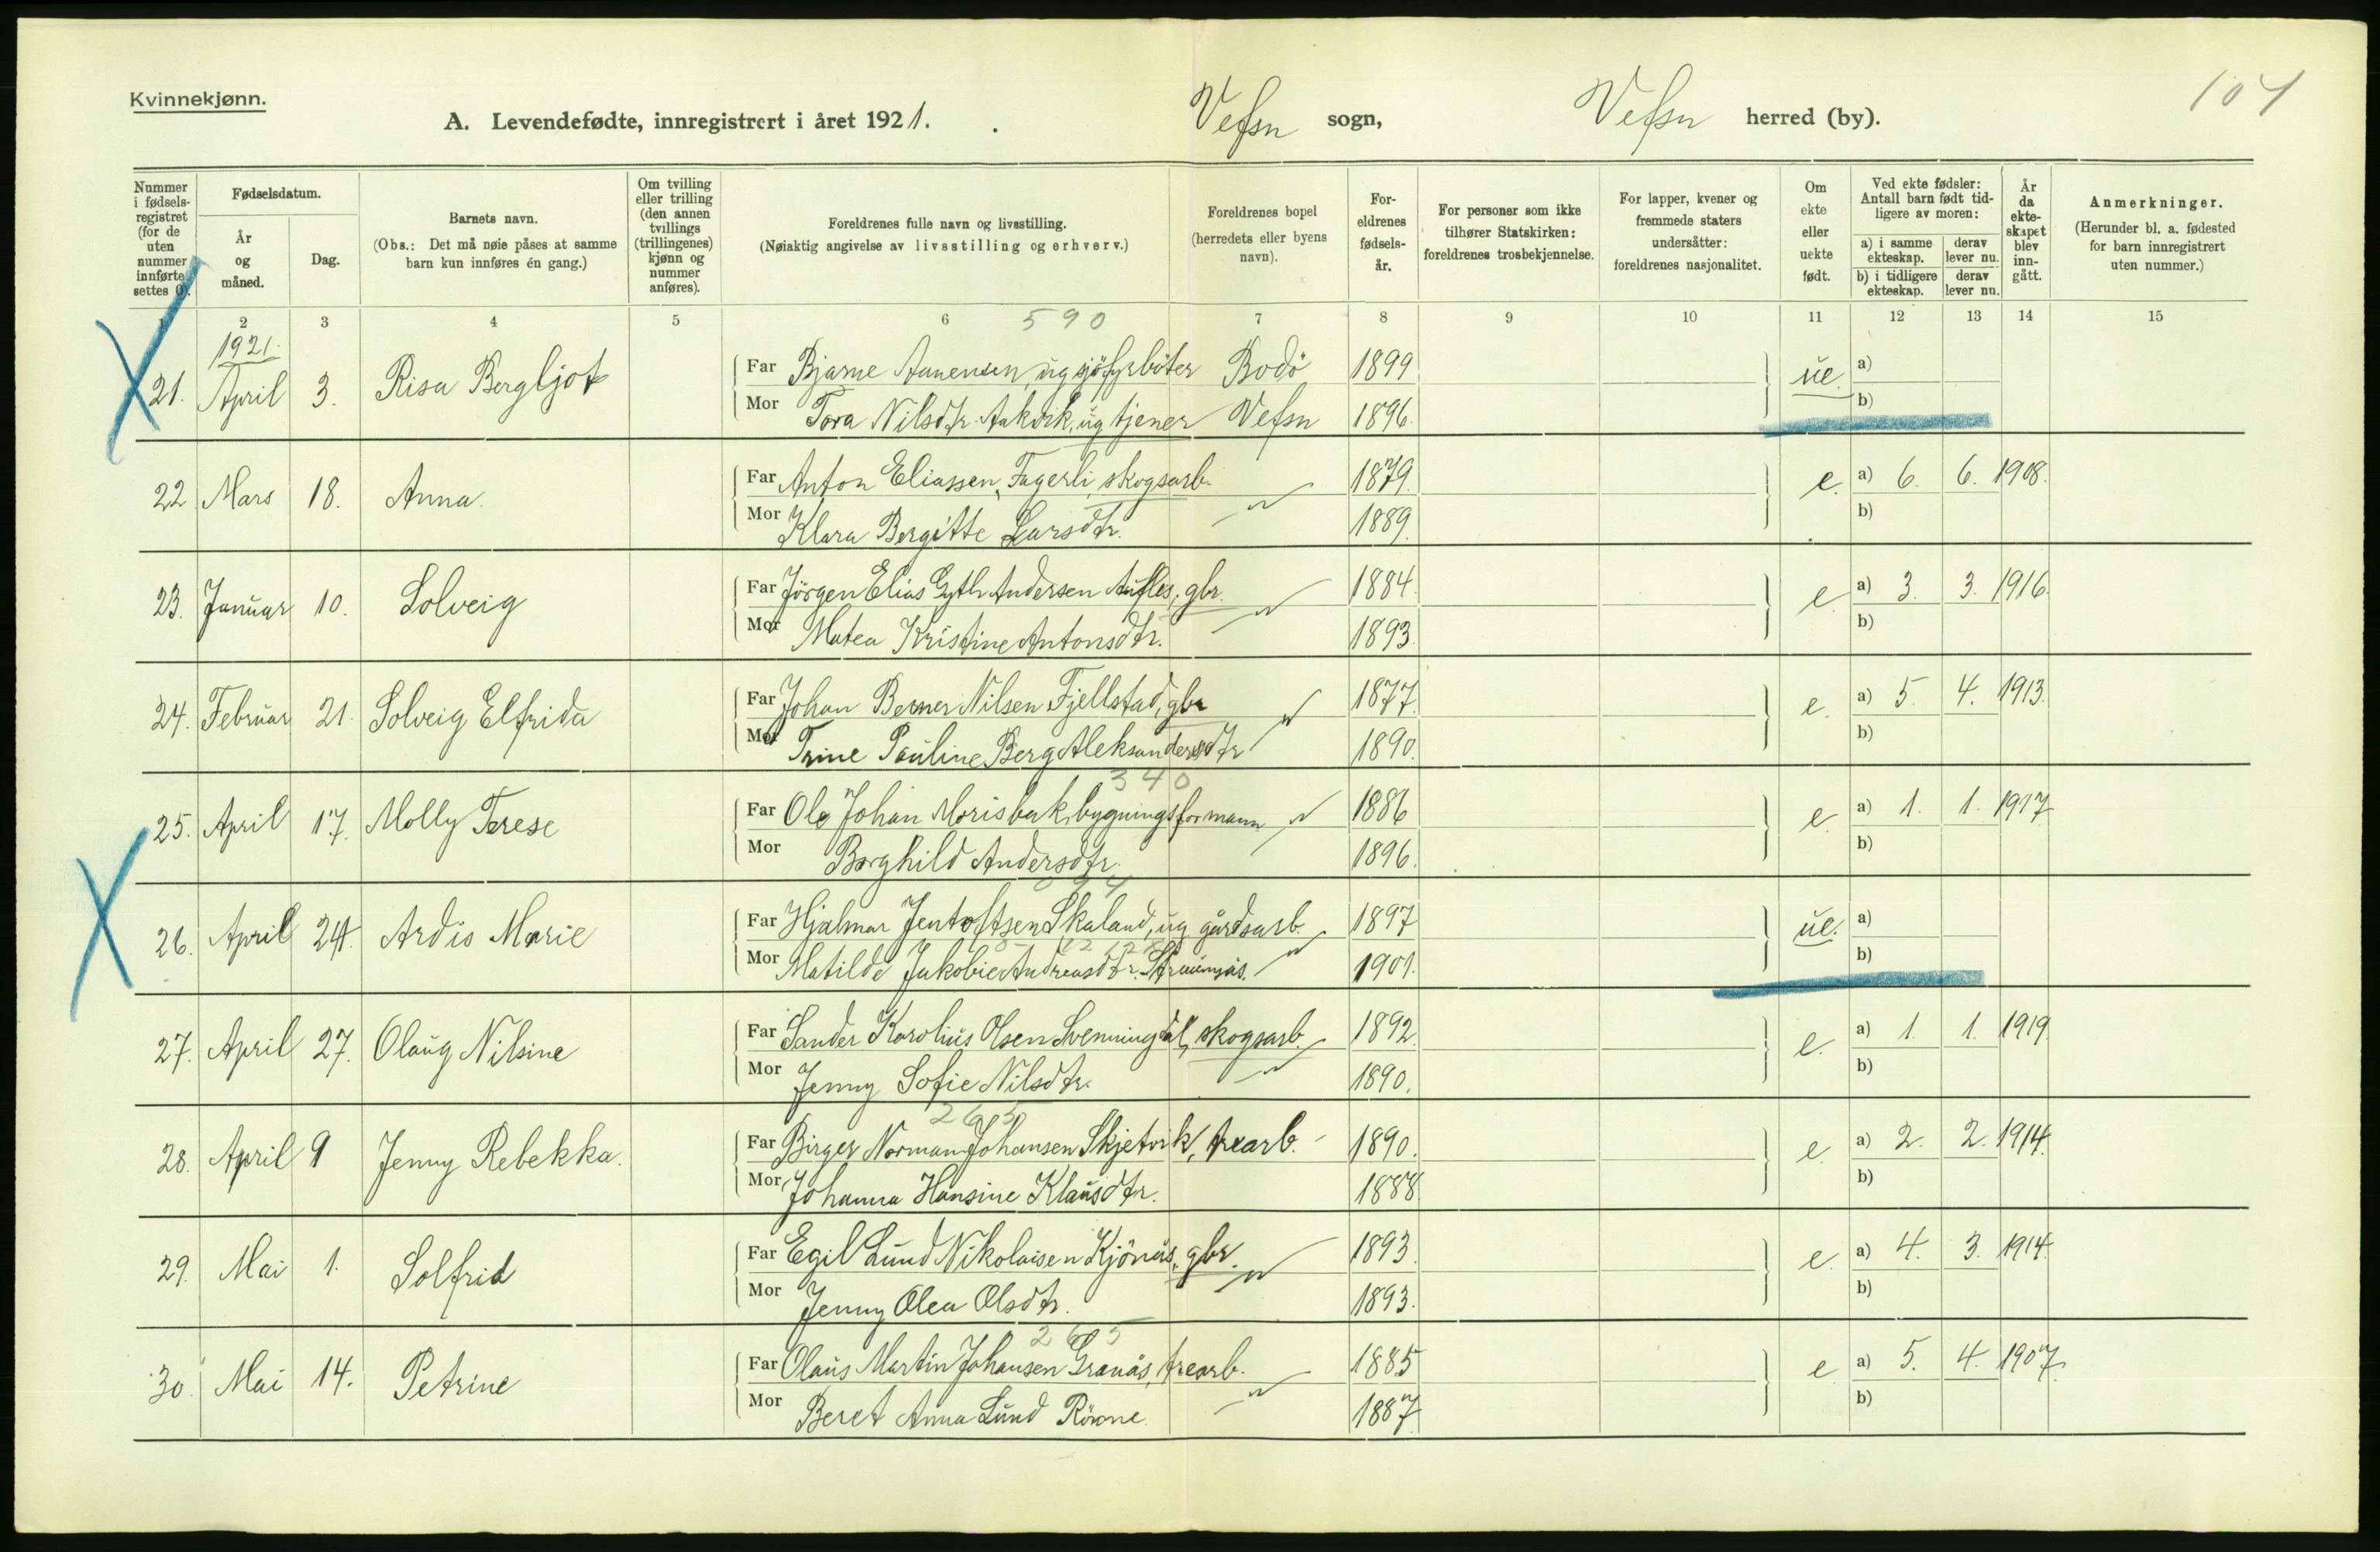 Kvinnekjønn.
A. Levendefødte, innregistrert i året 1921.
Vefsn sogn, Vefsn herred (by).
104
Nummer i fødsels-registret (for de uten nummer innførte settes 0).
Fødselsdatum.
År og måned.
Dag.
Barnets navn.
(Obs.: Det må nøie påses at samme barn kun innføres én gang.)
Om tvilling eller trilling (den annen tvillings (trillingenes) kjønn og nummer anføres).
Foreldrenes fulle navn og livsstilling.
(Nøiaktig angivelse av livsstilling og erhverv.)
Foreldrenes bopel (herredets eller byens navn).
For-eldrenes fødsels-år.
For personer som ikke tilhører Statskirken: foreldrenes trosbekjennelse.
For lapper, kvener og fremmede staters undersåtter: foreldrenes nasjonalitet.
Om ekte eller uekte født.
Ved ekte fødsler: Antall barn født tid-ligere av moren:
a) i samme ekteskap. derav lever nu.
b) i tidligere ekteskap. derav lever nu.
År da ekte-skapet blev inn-gått.
Anmerkninger.
(Herunder bl. a. fødested for barn innregistrert uten nummer.)
1 2 3 4 5 6 7 8 9 10 11 12 13 14 15
590
1921.
21. April 3. Risa Bergljot Far Bjarne Aanensen, ug sjöfyrböter Bodö 1899 ue. a)
Mor Tora Nilsdtr. Aakvik, ug tjener Vefsn 1896. b)
22. Mars 18. Anna. Far Anton Eliassen, Fagerli, skogsarb. 1879. e. a) 6. 6. 1908.
Mor Klara Bergitte Larsdtr. 〃 1889. b)
23. Januar 10. Solveig Far Jörgen Elias Gyth Andersen Aufles, gbr. 1884. e. a) 3. 3. 1916.
Mor Matea Kristine Antonsdtr. 〃 1893. b)
24. Februar 21. Solveig Elfrida Far Johan Berner Nilsen Fjellstad, gbr 〃 1877. e. a) 5. 4. 1913.
Mor Trine Pauline Berg Aleksandersdtr 1890. b)
340
25. April 17. Molly Terese Far Ole Johan Morisbak, bygningsformann 〃 1886 e. a) 1. 1. 1917
Mor Borghild Andersdtr. 1896. b)
26. April 24. Ardis Marie Far Hjalmar Jentoftsen Skaland, ug. gårdsarb. 1897 ue. a)
Mor Matilde Jakobie Andreasdtr. 〃 1901. b)
27. April 27. Olaug Nilsine Far Sander Karolius Olsen Svenningdal, skogsarb. 1892. e. a) 1. 1. 1919.
Mor Jenny Sofie Nilsdtr. 〃 1890. b)
265
28. April 9 Jenny Rebekka. Far Birger Norman Johansen Skjetvik, trearb. 1890. e. a) 2. 2. 1914.
Mor Johanna Hansine Klausdtr. 1888 b)
29. Mai 1. Solfrid Far Egil Lund Nikolaisen Kjönås, gbr. 1893. e. a) 4. 3. 1914.
Mor Jenny Olea Olsdtr. 〃 1893. b)
265
30. Mai 14. Petrine Far Olaus Martin Johansen Granås, trearb. 1885 e a) 5. 4. 1907.
Mor Beret Anna Lund 〃 1887 b)